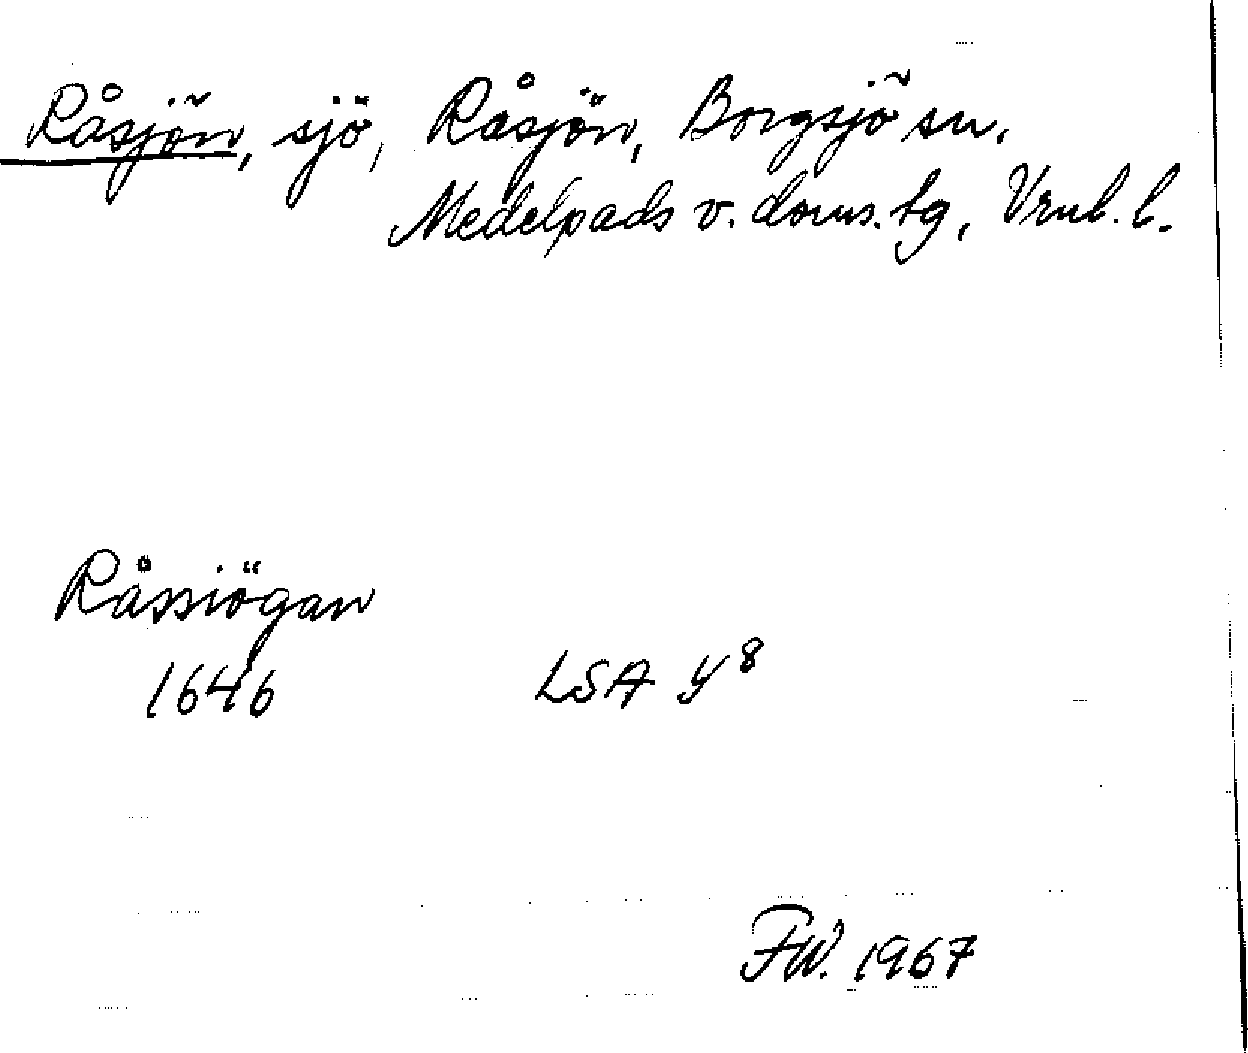 Råsjön, sjö, Råsjön, Borgsjö sn.
Medelpads v. doms. tg, Vrnl. l.
Råssiögan
1646 LSA Y 8
FW. 1967